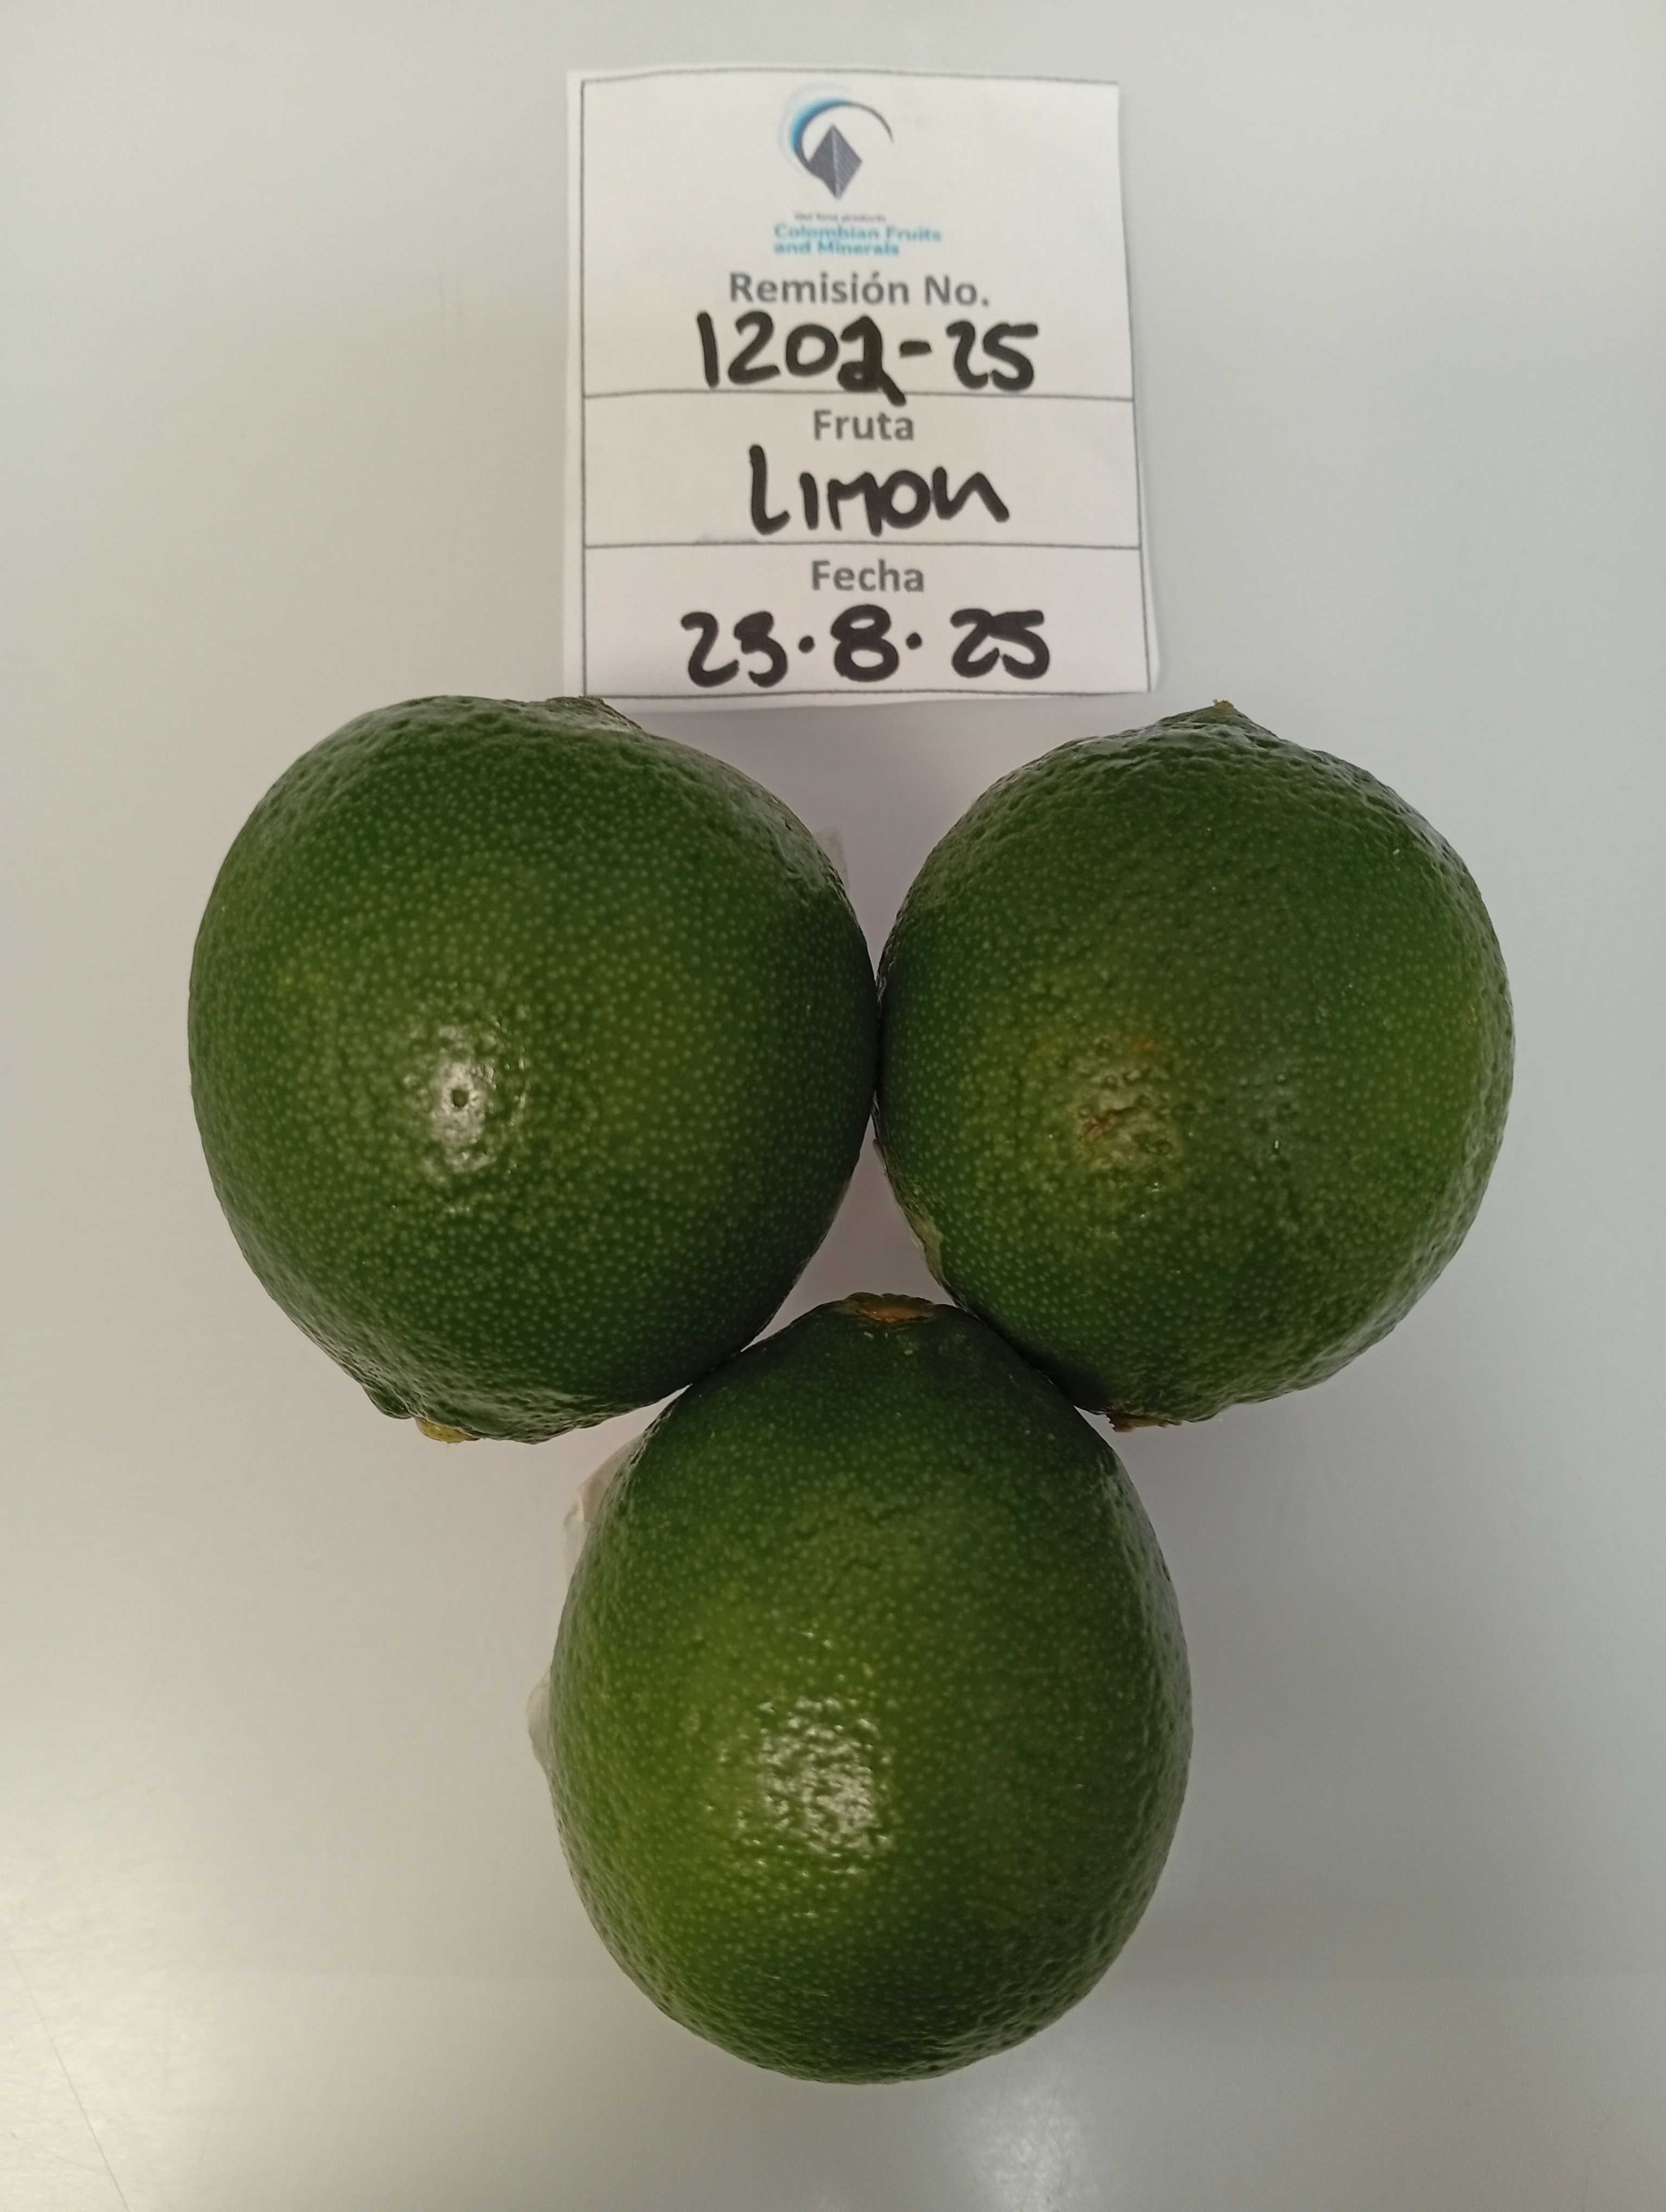 Colombian Fruits
and Minerals
Remisión No.
1202-25
Fruta
Limon
Fecha
23.8.25